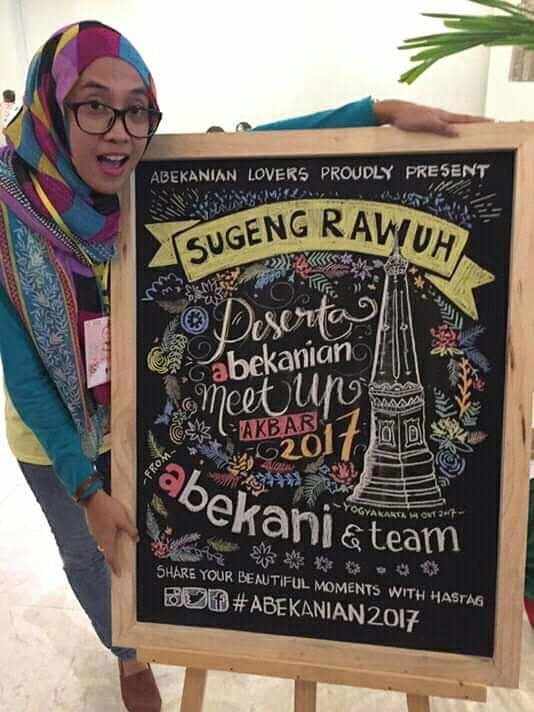 ABEKANIAN LOVERS PROUDLY PRESENT
SUGENG RAWUH
Peserta
abekanian
meet up
AKBAR
2017
-FROM-
abekani
& team
-YOGYAKARTA 14 OKT 2017-
SHARE YOUR BEAUTIFUL MOMENTS WITH HASTAG
#ABEKANIAN2017